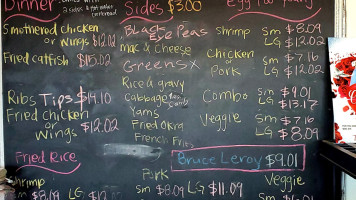 Dinner
Smothered chicken
or wings $12.03
Fried catfish $15.02
Ribs Tips $14.10
Fried chicken
or wings $12.02
Fried Rice
Shrimp
sm $8.09 LG $12
Sides $3.00
Black Eye Peas
Mac & cheese
Greens X
Rice & gravy
Cabbage
Yams
Fried Okra
French Fries
Egg Foo Young
Shrimp Sm $8.09
LG $12.02
Chicken or Pork Sm $7.16
LG $12.02
Combo Sm $9.01
LG $13.17
Veggie Sm $7.16
LG $8.09
Bruce Leroy $9.01
Pork
sm $8.09 LG $11.09
Veggie